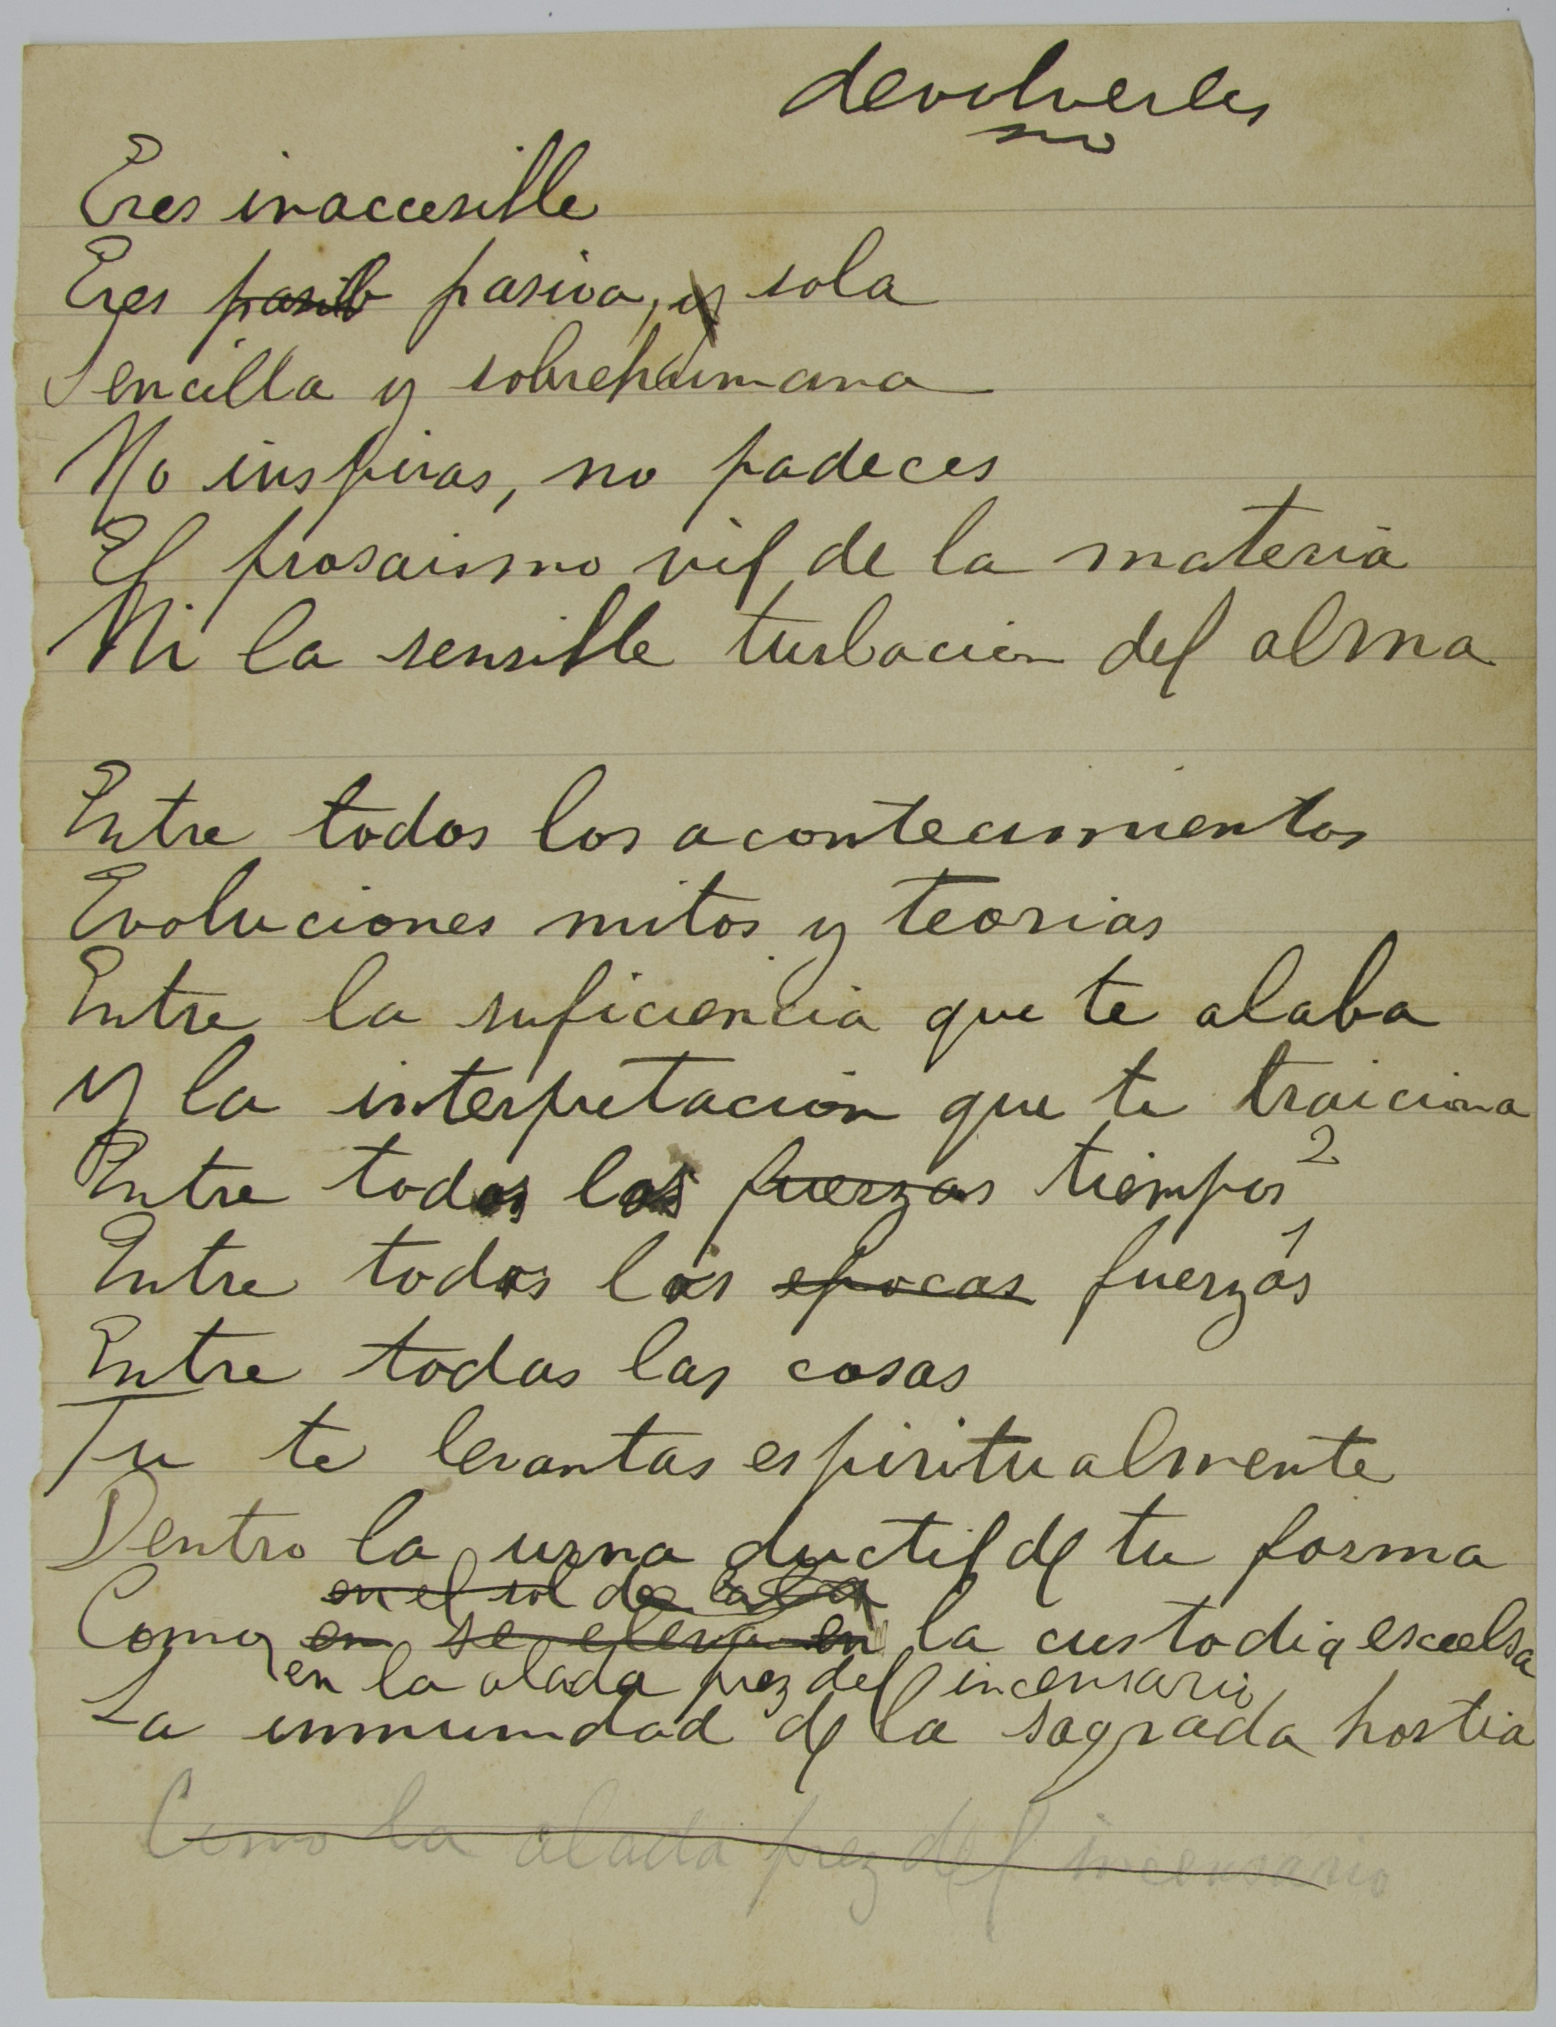 devolverles
no
Eres inaccesible
Eres pasib pasiva, y sola
Sencilla y sobrehumana
No inspiras, no padeces
El prosaismo vil de la materia
Ni la sensible turbacion del alma
Entre todos los acontecimientos
Evoluciones mitos y teorias
Entre la suficiencia que te alaba
y la interpretación que te traiciona
Entre todos los fuerzas tiempos 2
Entre todas las epocas fuerzas 1
Entre todas las cosas
Tu te levantas espiritualmente
Dentro la urna ductil de tu forma
en el sol de la
Como en se eleva en la custodia excelsa
en la alada prez del incensario
La inmunidad de la sagrada hostia
Como la alada prez del incensario